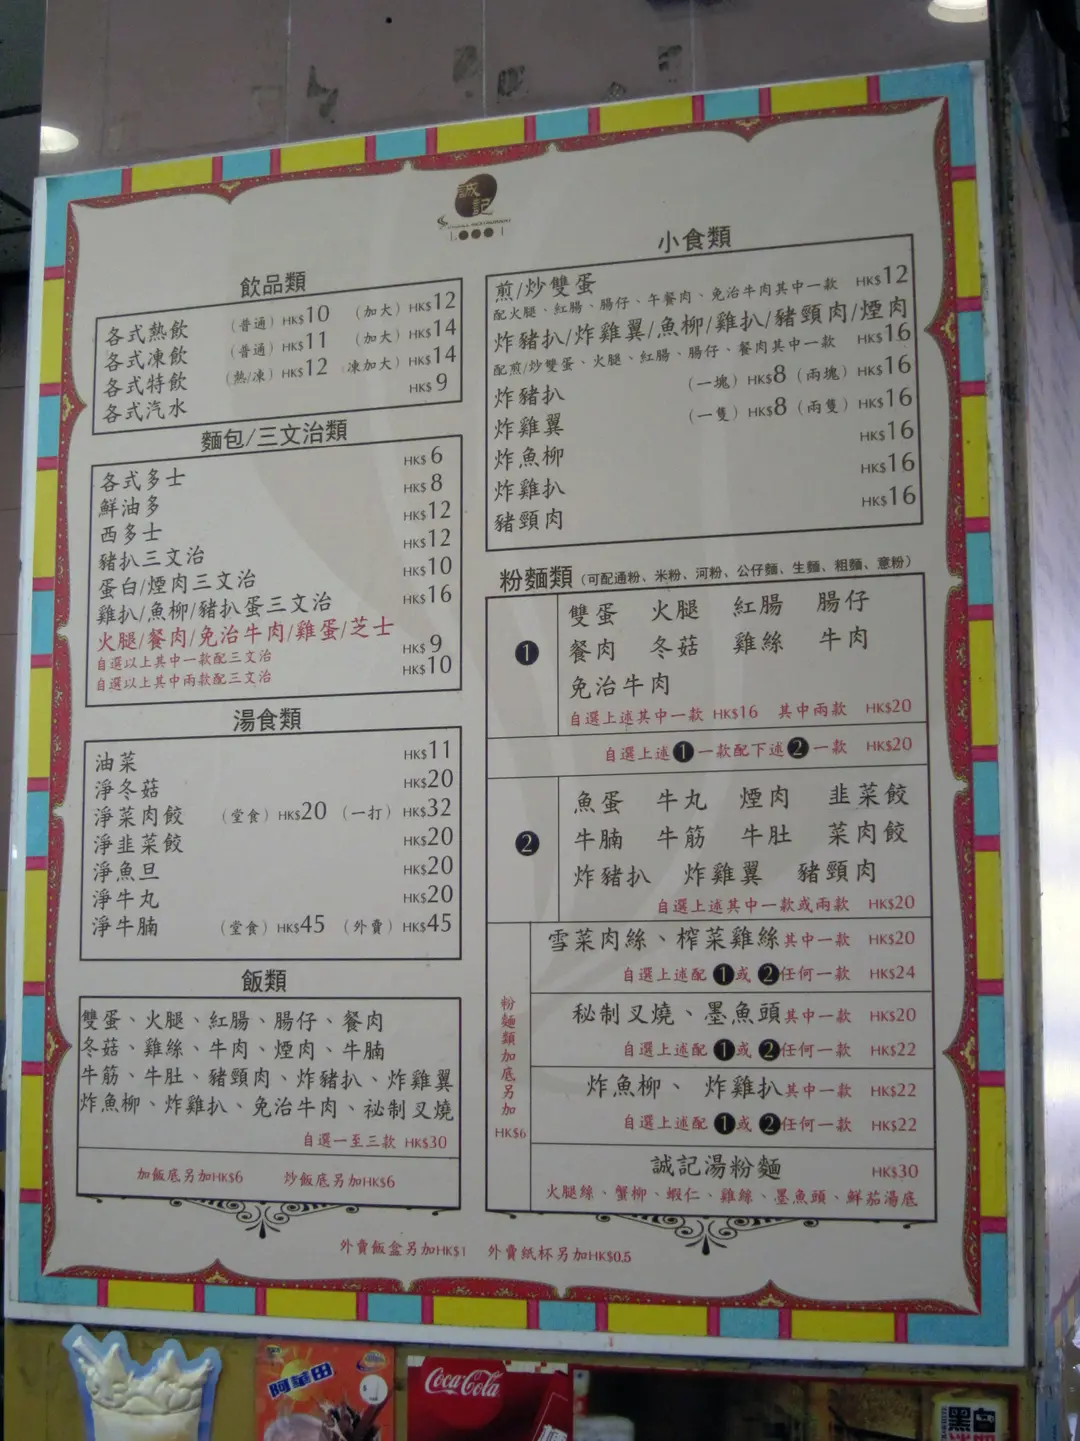 誠
記
飲品類
各式熱飲 (普通) HK$10 (加大) HK$12
各式凍飲 (普通) HK$11 (加大) HK$14
各式特飲 (熱/凍) HK$12 (凍加大) HK$14
各式汽水 HK$9
麵包/三文治類
各式多士 HK$6
鮮油多 HK$8
西多士 HK$12
豬扒三文治 HK$12
蛋白/煙肉三文治 HK$10
雞扒/魚柳/豬扒蛋三文治 HK$16
火腿/餐肉/免治牛肉/雞蛋/芝士
自選以上其中一款配三文治 HK$9
自選以上其中兩款配三文治 HK$10
湯食類
油菜 HK$11
淨冬菇 HK$20
淨菜肉餃 (堂食) HK$20 (一打) HK$32
淨韭菜餃 HK$20
淨魚旦 HK$20
淨牛丸 HK$20
淨牛腩 (堂食) HK$45 (外賣) HK$45
飯類
雙蛋、火腿、紅腸、腸仔、餐肉
冬菇、雞絲、牛肉、煙肉、牛腩
牛筋、牛肚、豬頸肉、炸豬扒、炸雞翼
炸魚柳、炸雞扒、免治牛肉、祕制叉燒
自選一至三款 HK$30
加飯底另加HK$6 炒飯底另加HK$6
小食類
煎/炒雙蛋 HK$12
配火腿、紅腸、腸仔、午餐肉、免治牛肉其中一款
炸豬扒/炸雞翼/魚柳/雞扒/豬頸肉/煙肉
配煎/炒雙蛋、火腿、紅腸、腸仔、餐肉其中一款 HK$16
炸豬扒 (一塊) HK$8 (兩塊) HK$16
炸雞翼 (一隻) HK$8 (兩隻) HK$16
炸魚柳 HK$16
炸雞扒 HK$16
豬頸肉 HK$16
粉麵類 (可配通粉、米粉、河粉、公仔麵、生麵、粗麵、意粉)
1
雙蛋 火腿 紅腸 腸仔
餐肉 冬菇 雞絲 牛肉
免治牛肉
自選上述其中一款 HK$16 其中兩款 HK$20
自選上述1一款配下述2一款 HK$20
2
魚蛋 牛丸 煙肉 韭菜餃
牛腩 牛筋 牛肚 菜肉餃
炸豬扒 炸雞翼 豬頸肉
自選上述其中一款或兩款 HK$20
粉麵類加底另加 HK$6
雪菜肉絲、榨菜雞絲其中一款 HK$20
自選上述配1或2任何一款 HK$24
秘制叉燒、墨魚頭其中一款 HK$20
自選上述配1或2任何一款 HK$22
炸魚柳、炸雞扒其中一款 HK$22
自選上述配1或2任何一款 HK$22
誠記湯粉麵 HK$30
火腿絲、蟹柳、蝦仁、雞絲、墨魚頭、鮮茄湯底
外賣飯盒另加HK$1 外賣紙杯另加HK$0.5
阿華田
Coca-Cola
黑白